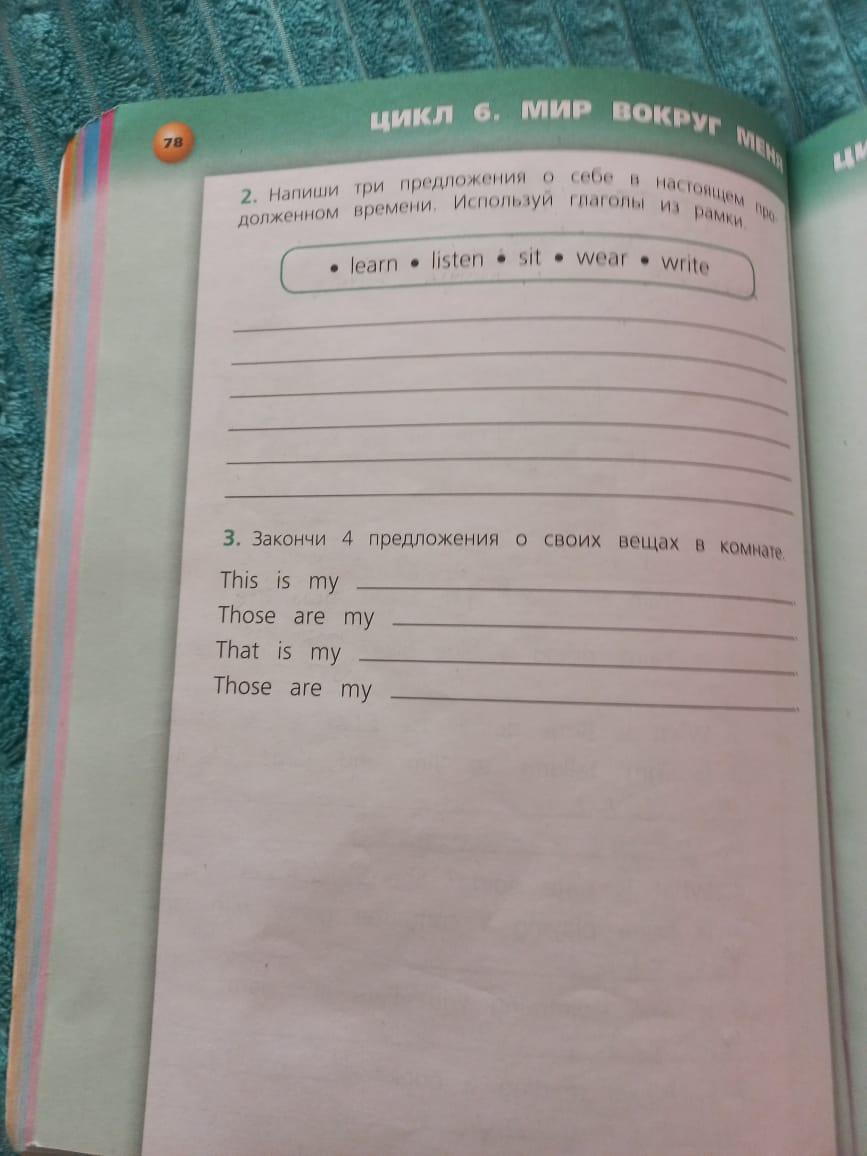 78
ЦИКЛ 6. МИР ВОКРУГ МЕНЯ
2. Напиши три предложения о себе в настоящем про-
должен​ном времени. Используй глаголы из рамки.
• learn • listen • sit • wear • write
3. Закончи 4 предложения о своих вещах в комнате.
This is my
Those are my
That is my
Those are my